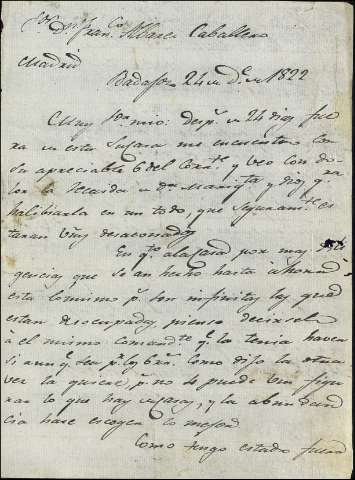 Sor Dn Franco Alvarez Caballero
Madrid
Badajoz 24 de De de 1822
Muy Sor mio: Desps de 24 dias fue
ra de esta su casa me encuentro con
su apreciable 6 del Corrte y veo con do
lor la de Da y dios qra
habilitarla en un todo, que seguramte es
taran Vms desazonados
En qto a la casa por mas dili
gencias que se an hecho hasta ahora
esta lo mismo pr son infinitas las que
estan desocupadas, pienso decirsela
á el mismo Comandte qe la tenia haver
si aunqe sea pr los 6 rs. como dijo la
ver la quiere, pr no se puede Vm figu
rar lo que hay vajas, y la abundan
cia hace escoger lo mejor
Como tengo estado fuera